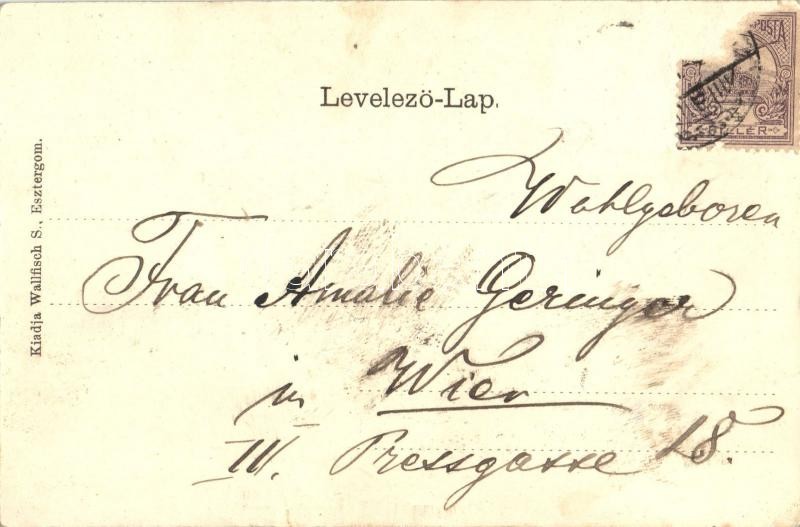 Levelező-Lap.
POSTA
FILLÉR
Kiadja Wallfisch S., Esztergom.
Wohlgeboren
Frau Amalie Geringer
in Wien
III. Pressgasse 28.